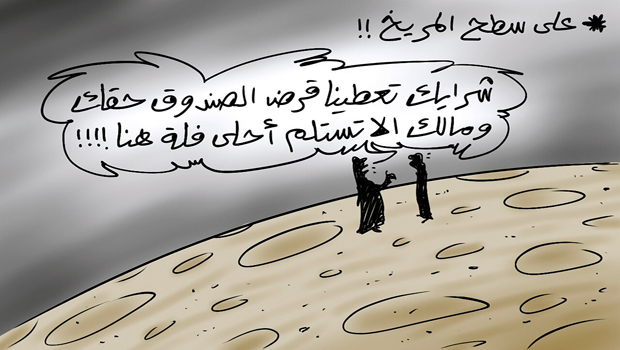 * على سطح المريخ !!
شرايك تعطينا قرض الصندوق حقك
ومالك إلا تستلم أحلى فلة هنا !!!!